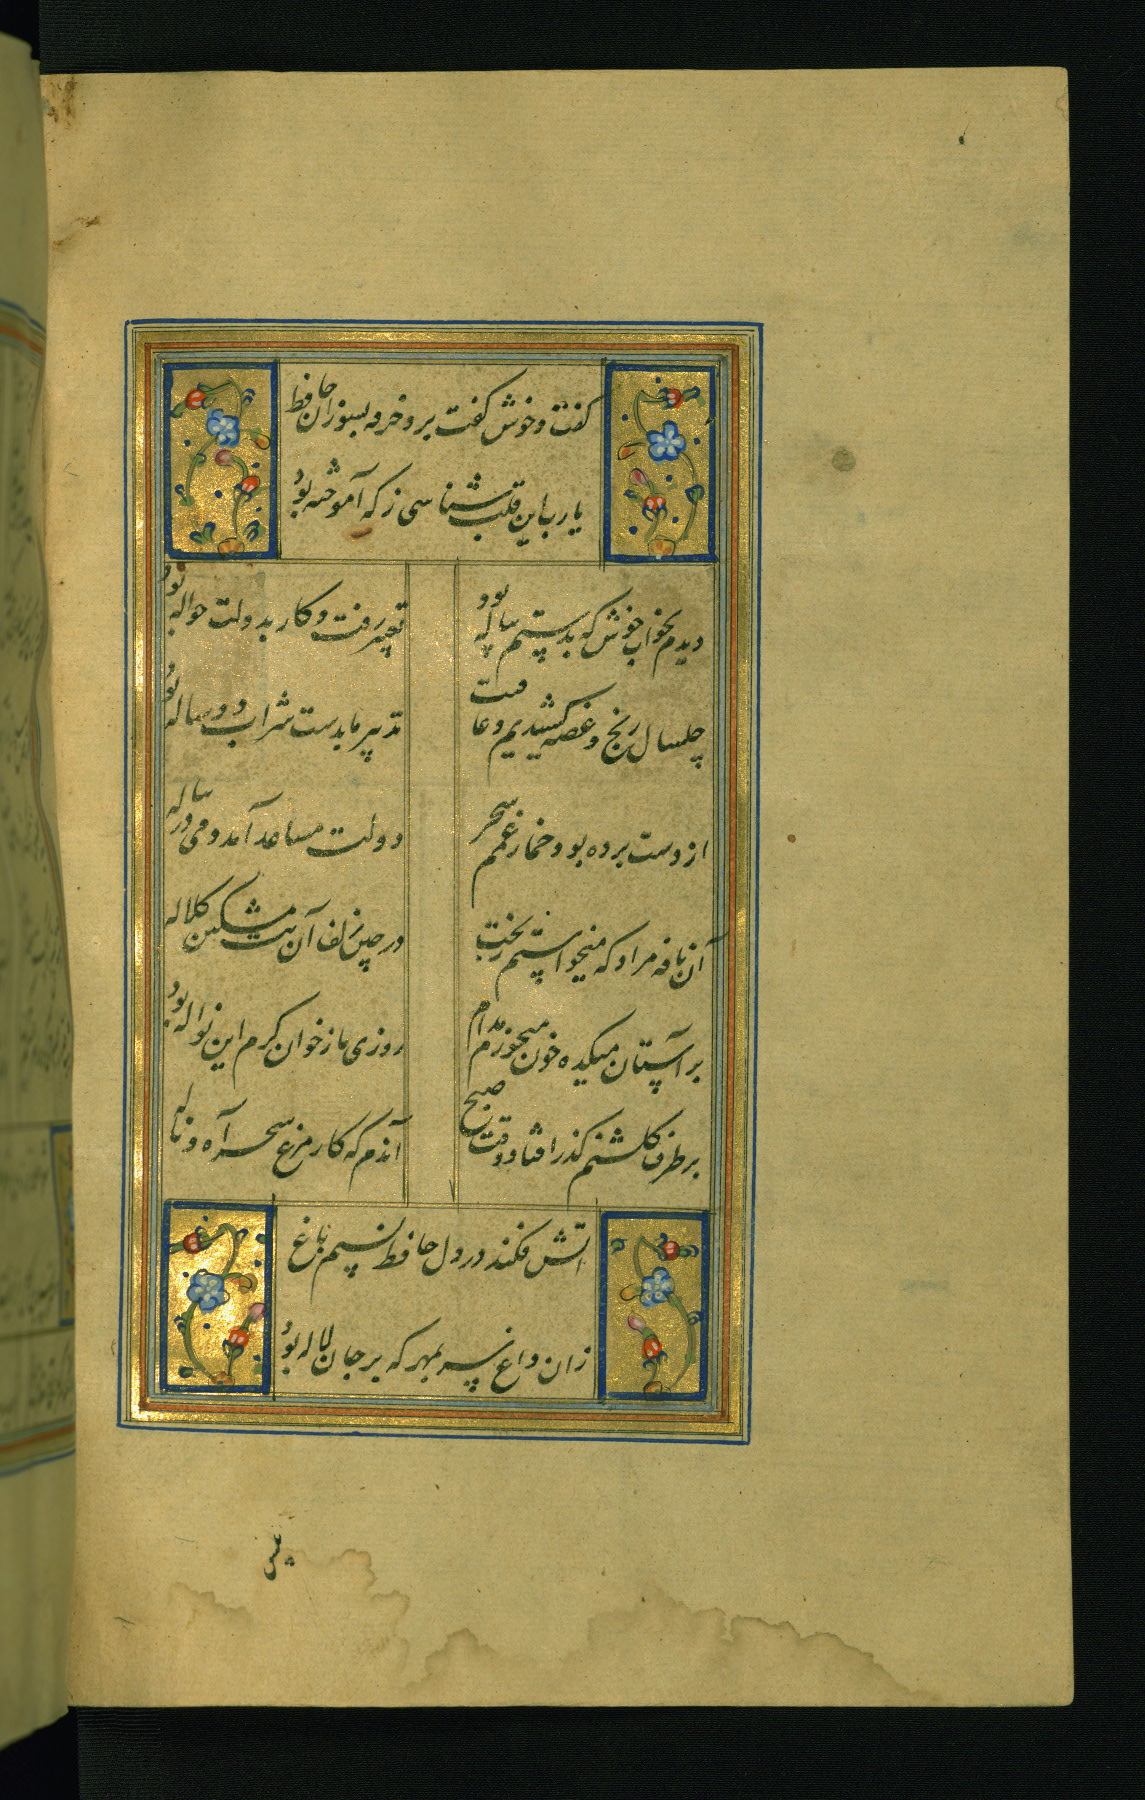 گفت و خوش گفت برو خرقه بسوزان حافظ
یا رب این قلب شناسی ز که آموخته بود
دیدم بخواب خوش که بدستم پیاله بود تعبیر رفت و کار بدولت حواله بود
چلسال رنج و غصه کشیدیم و عاقبت تدبیر ما بدست شراب دو ساله بود
از دست برده بود خمار غمم سحر دولت مساعد آمد و می در پیاله
آن نافه مراد که میخواستم ز بخت در چین زلف آن بت مشکین کلاله
بر آستان میکده خون میخورم مدام روزی ما ز خوان کرم این نواله بود
بر طرف گلشنم گذر افتاد وقت صبح آندم که کار مرغ سحر آه و ناله
آتش فکند در دل حافظ نسیم باغ
زان داغ سر بمهر که بر جان لاله بود